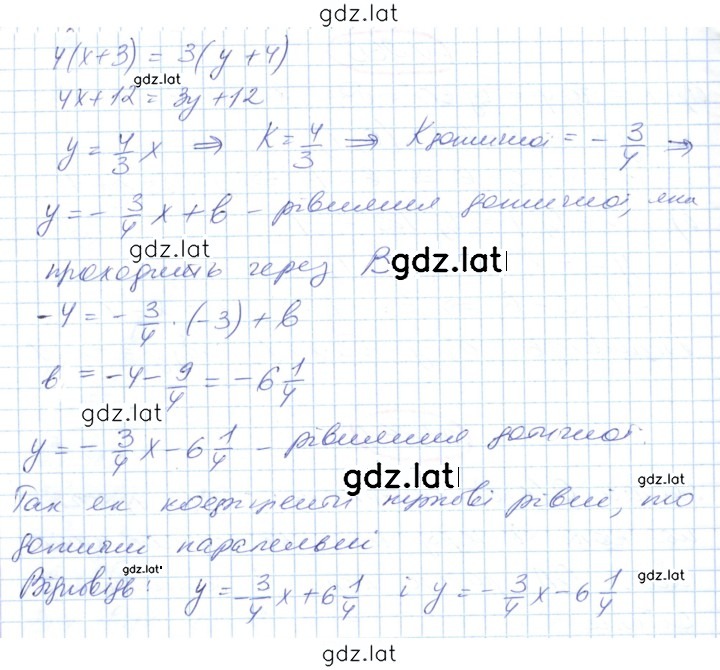 gdz.lat
4(x+3) = 3(y+4)
gdz.lat
4x+12 = 3y+12
y = 4/3 x ⇒ K = 4/3 ⇒ K дотичної = - 3/4 ⇒
y = - 3/4 x + в - рівняння дотичної, яка
gdz.lat
проходить через В gdz.lat
-4 = - 3/4 · (-3) + в
в = -4 - 9/4 = -6 1/4
gdz.lat
y = - 3/4 x - 6 1/4 - рівняння дотичної.
gdz.lat
Так як коефіцієнти кутові рівні, то
дотичні паралельні
gdz.lat
gdz.lat
Відповідь: y = - 3/4 x + 6 1/4 і y = - 3/4 x - 6 1/4
gdz.lat
gdz.lat